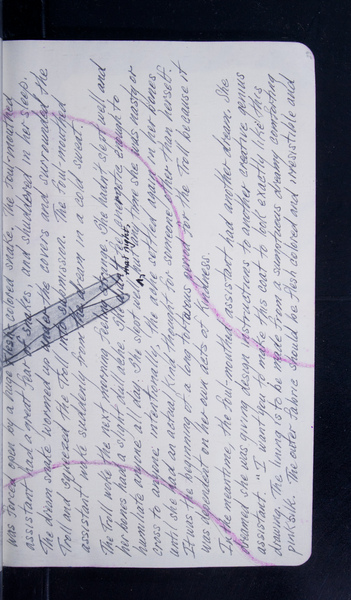 was forced open by a huge flesh colored snake. The foul-mouthed
assistant had a great fear of snakes, and shuddered in her sleep.
The dream snake wormed up under the covers and surrounded the
Troll and squeezed the Troll into submission. The foul mouthed
assistant woke suddenly from the dream in a cold sweat.
The Troll woke the next morning feeling strange. She hadn't slept well and
her bones had a slight dull ache. She enough to
humiliate anyone all day. She slept every time she was nasty or
that night.
cross to anyone intentionally, the ache settled again in her bones
until she had an actual kind thought for someone other than herself.
It was the beginning of a long for the Troll because it
was dependent on her own acts of Kindness.
In the meantime, the foul-mouthed assistant had another dream. She
dreamed she was giving design instructions to another creative genius
assistant. "I want you to make this coat to look exactly like this
drawing. The lining is to be made from a sumptuous dreamy comforting
pink silk. The outer fabric should be flesh colored and irresistible and